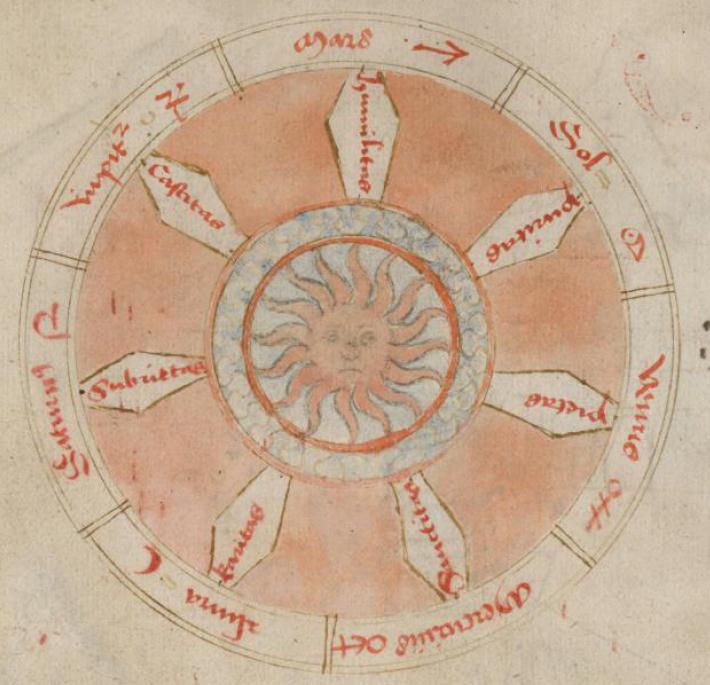 Mars
Sol
Venus
Mercurius
Luna
Saturnus
Iupiter
humilitas
puritas
pietas
Sanctitas
karitas
Subrietas
Castitas